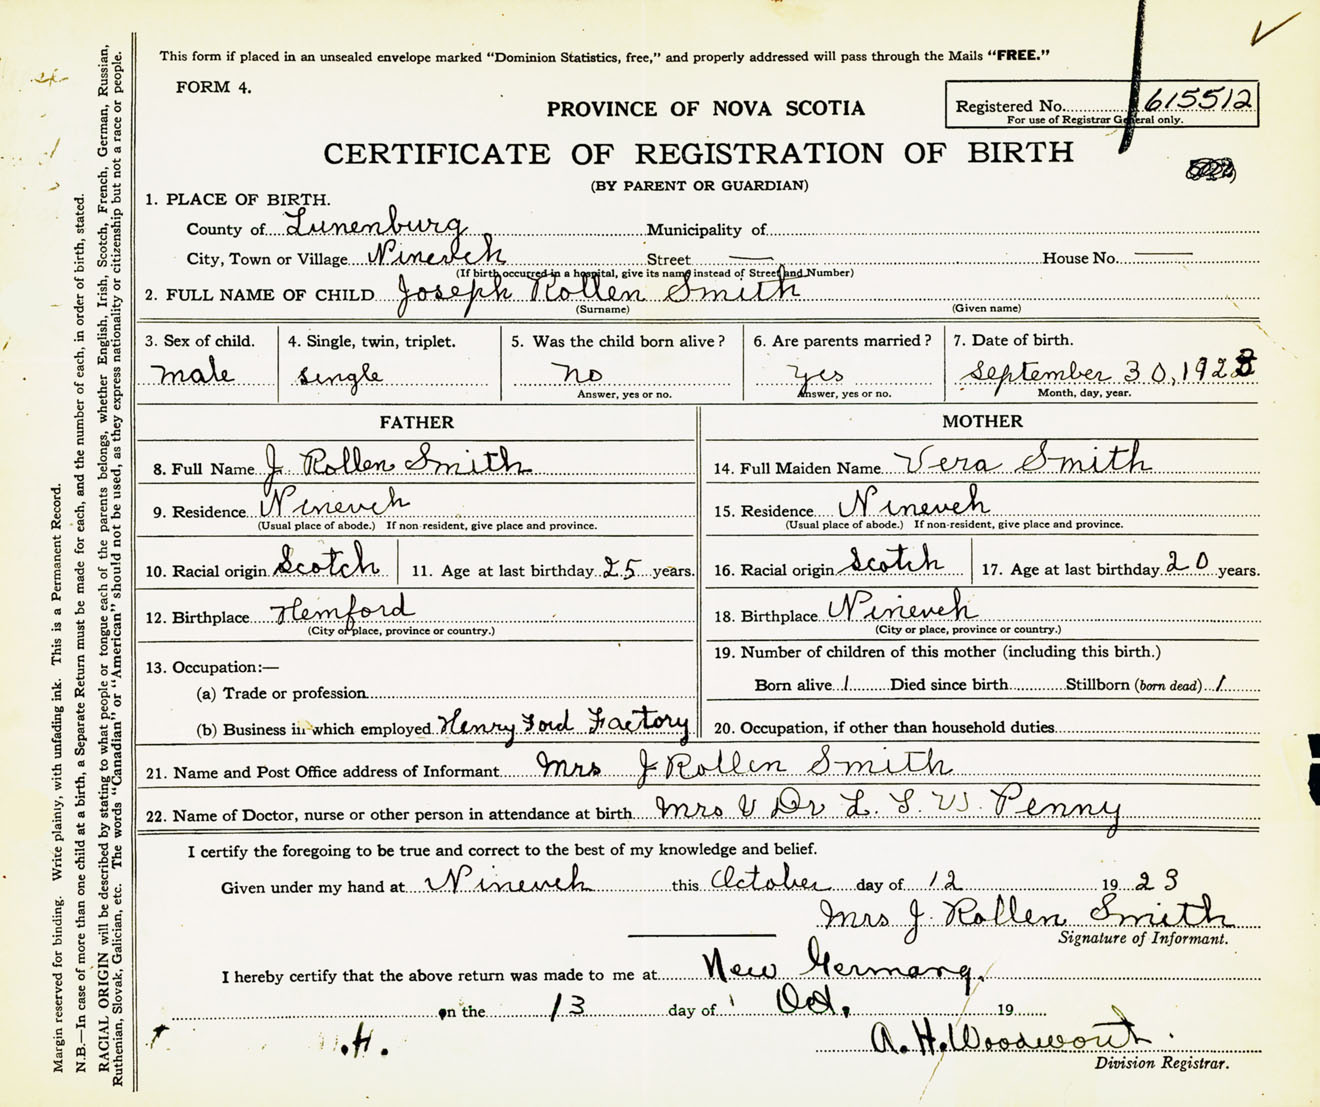 This form if placed in an unsealed envelope marked "Dominion Statistics, free," and properly addressed will pass through the Mails "FREE."
FORM 4.
PROVINCE OF NOVA SCOTIA
Registered No. 615512
For use of Registrar General only.
CERTIFICATE OF REGISTRATION OF BIRTH
(BY PARENT OR GUARDIAN)
1. PLACE OF BIRTH.
County of Lunenburg Municipality of
City, Town or Village Nineveh Street — House No. —
(If birth occurred in a hospital, give its name instead of Street and Number)
2. FULL NAME OF CHILD Joseph Rollen Smith
(Surname) (Given name)
3. Sex of child. 4. Single, twin, triplet. 5. Was the child born alive? 6. Are parents married? 7. Date of birth.
male single no yes September 30, 1923
Answer, yes or no. Answer, yes or no. Month, day, year.
FATHER MOTHER
8. Full Name J. Rollen Smith 14. Full Maiden Name Vera Smith
9. Residence Nineveh 15. Residence Nineveh
(Usual place of abode.) If non-resident, give place and province. (Usual place of abode.) If non-resident, give place and province.
10. Racial origin Scotch 11. Age at last birthday 25 years. 16. Racial origin Scotch 17. Age at last birthday 20 years.
12. Birthplace Hemford 18. Birthplace Nineveh
(City or place, province or country.) (City or place, province or country.)
13. Occupation:— 19. Number of children of this mother (including this birth.)
(a) Trade or profession Born alive 1 Died since birth Stillborn (born dead) 1
(b) Business in which employed Henry Ford Factory 20. Occupation, if other than household duties
21. Name and Post Office address of Informant Mrs J Rollen Smith
22. Name of Doctor, nurse or other person in attendance at birth Mrs V Dr L. S. W. Penny
I certify the foregoing to be true and correct to the best of my knowledge and belief.
Given under my hand at Nineveh this October day of 12 19 23
Mrs J. Rollen Smith
Signature of Informant.
I hereby certify that the above return was made to me at New Germany.
on the 13 day of Oct. 19
.H. A. H. Woodworth
Division Registrar.
Margin reserved for binding. Write plainly, with unfading ink. This is a Permanent Record.
N.B.—In case of more than one child at a birth, a Separate Return must be made for each, and the number of each, in order of birth, stated.
RACIAL ORIGIN will be described by stating to what people or tongue each of the parents belongs, whether English, Irish, Scotch, French, German, Russian,
Ruthenian, Slovak, Galician, etc. The words "Canadian" or "American" should not be used, as they express nationality or citizenship but not a race or people.